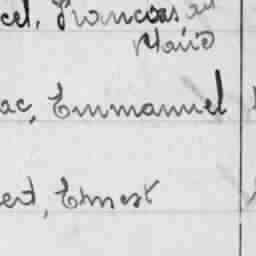 cel, François
Marie
ac, Emmanuel
ert, Ernest